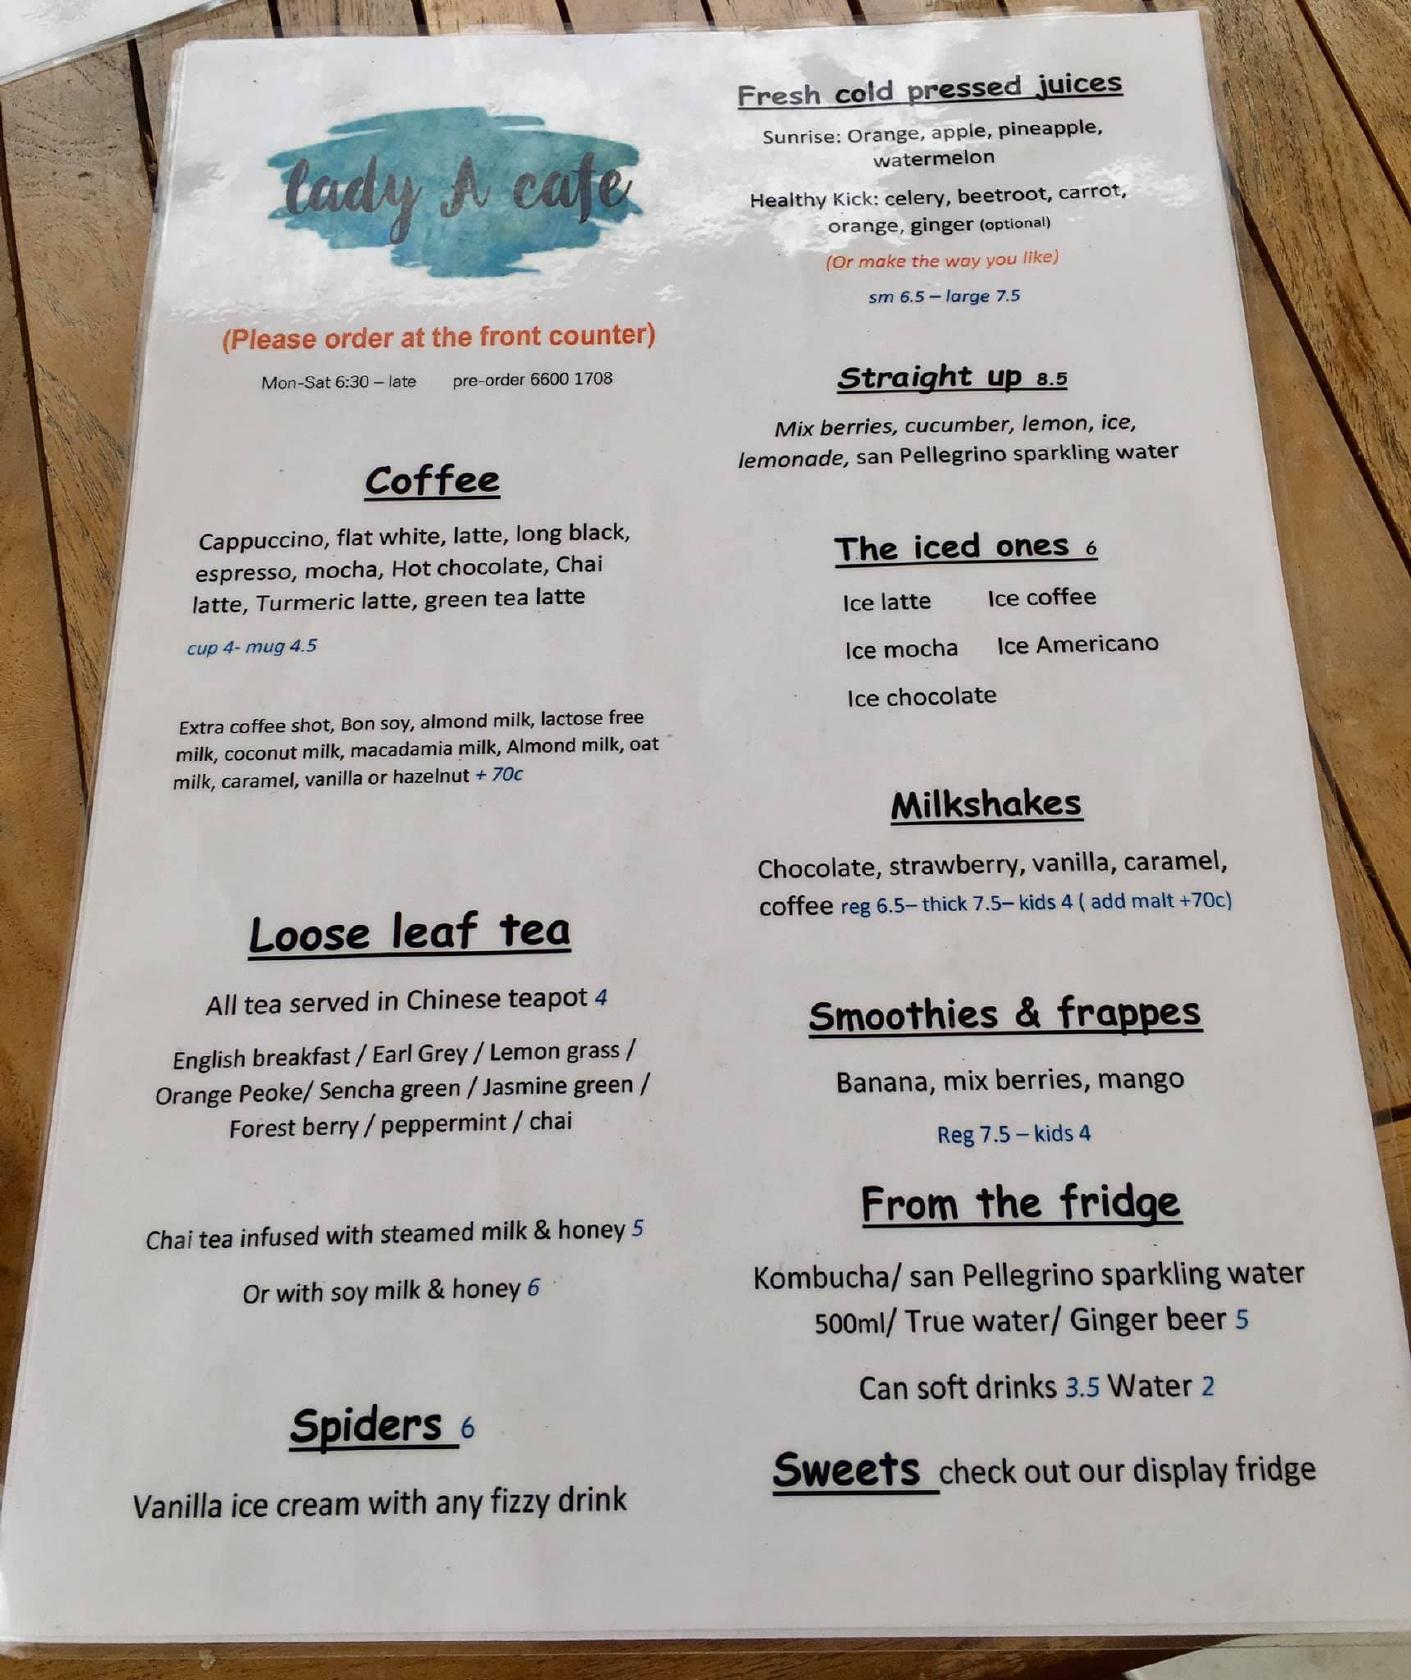 lady A cafe
(Please order at the front counter)
Mon-Sat 6:30 – late pre-order 6600 1708
Coffee
Cappuccino, flat white, latte, long black,
espresso, mocha, Hot chocolate, Chai
latte, Turmeric latte, green tea latte
cup 4- mug 4.5
Extra coffee shot, Bon soy, almond milk, lactose free
milk, coconut milk, macadamia milk, Almond milk, oat
milk, caramel, vanilla or hazelnut + 70c
Loose leaf tea
All tea served in Chinese teapot 4
English breakfast / Earl Grey / Lemon grass /
Orange Peoke/ Sencha green / Jasmine green /
Forest berry / peppermint / chai
Chai tea infused with steamed milk & honey 5
Or with soy milk & honey 6
Spiders 6
Vanilla ice cream with any fizzy drink
Fresh cold pressed juices
Sunrise: Orange, apple, pineapple,
watermelon
Healthy Kick: celery, beetroot, carrot,
orange, ginger (optional)
(Or make the way you like)
sm 6.5 – large 7.5
Straight up 8.5
Mix berries, cucumber, lemon, ice,
lemonade, san Pellegrino sparkling water
The iced ones 6
Ice latte Ice coffee
Ice mocha Ice Americano
Ice chocolate
Milkshakes
Chocolate, strawberry, vanilla, caramel,
coffee reg 6.5– thick 7.5– kids 4 ( add malt +70c)
Smoothies & frappes
Banana, mix berries, mango
Reg 7.5 – kids 4
From the fridge
Kombucha/ san Pellegrino sparkling water
500ml/ True water/ Ginger beer 5
Can soft drinks 3.5 Water 2
Sweets check out our display fridge